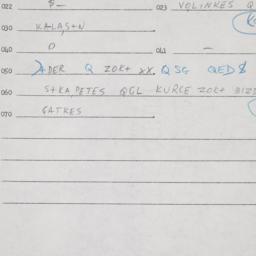 022 $— 023 VOLINKES Q
030 KALAS+N
040 0 041 —
050 ADER Q ZOK+ XX. Q SG QED$
060 S+KA PETES QGL KURCE ZOK+ BIZD
070 GATKES